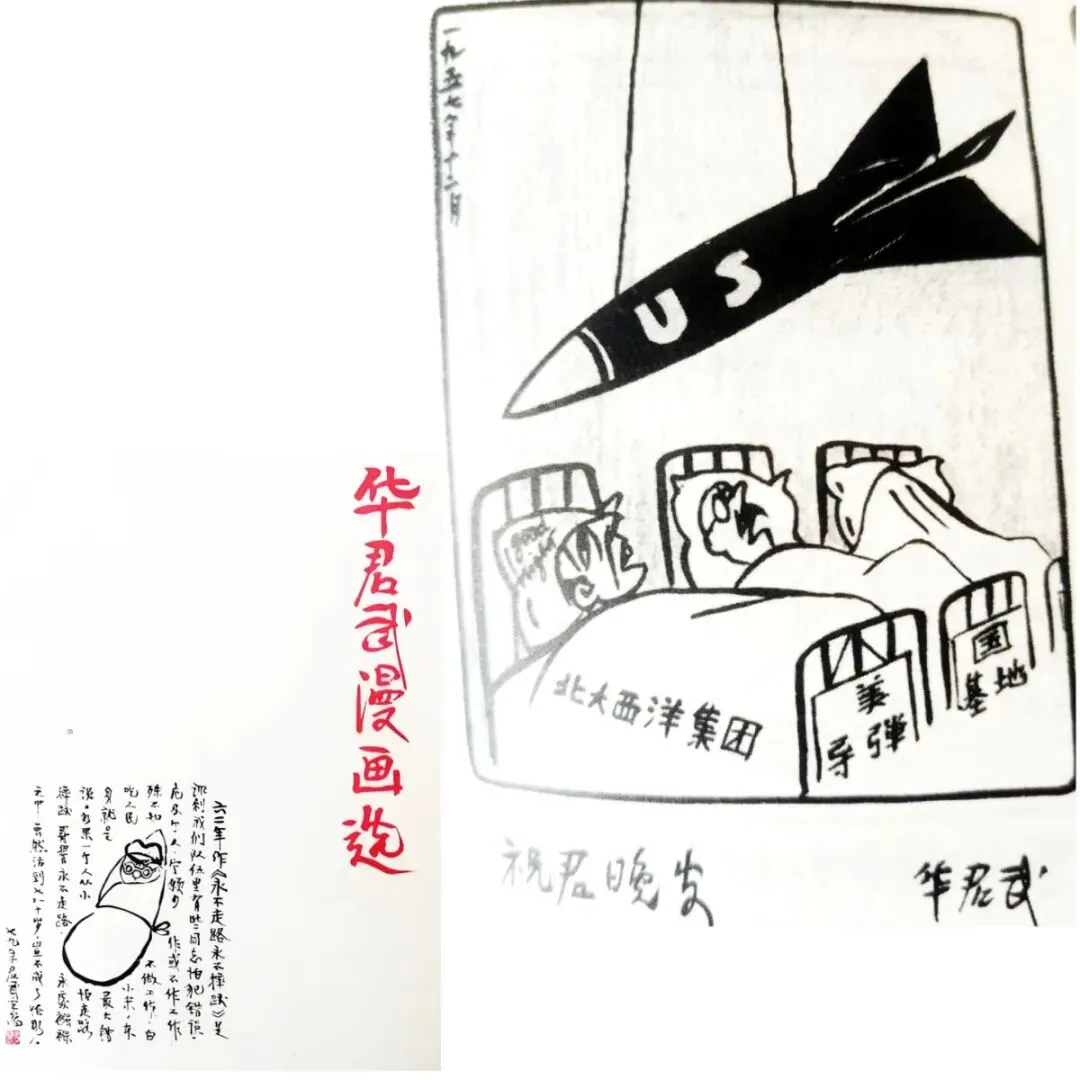 一九五七年十二月
US
good night
北大西洋集团
美国
导弹基地
祝君晚安
华君武
华君武漫画选
六二年作《永不走路永不摔跤》是
讽刺我们队伍里有些同志怕犯错误.
危及个人.宁愿少作或不作工作
殊不知不做工作.白
吃人民小米,本
身就是最大错
误.如果一个人从小怕走路
摔跤永不走路.永处襁褓
之中虽然活到七八十岁.岂不成了怪物.